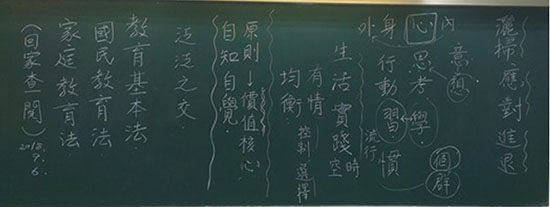 灑掃應對進退
意想
個群
內心思考.學.慣
外身行動習
流行
生活實踐時空
有情
均衡
控制選擇
原則→價值核心
自知自覺.
泛泛之交
教育基本法
國民教育法
家庭教育法.
(回家查一閱) 2018.9.6.